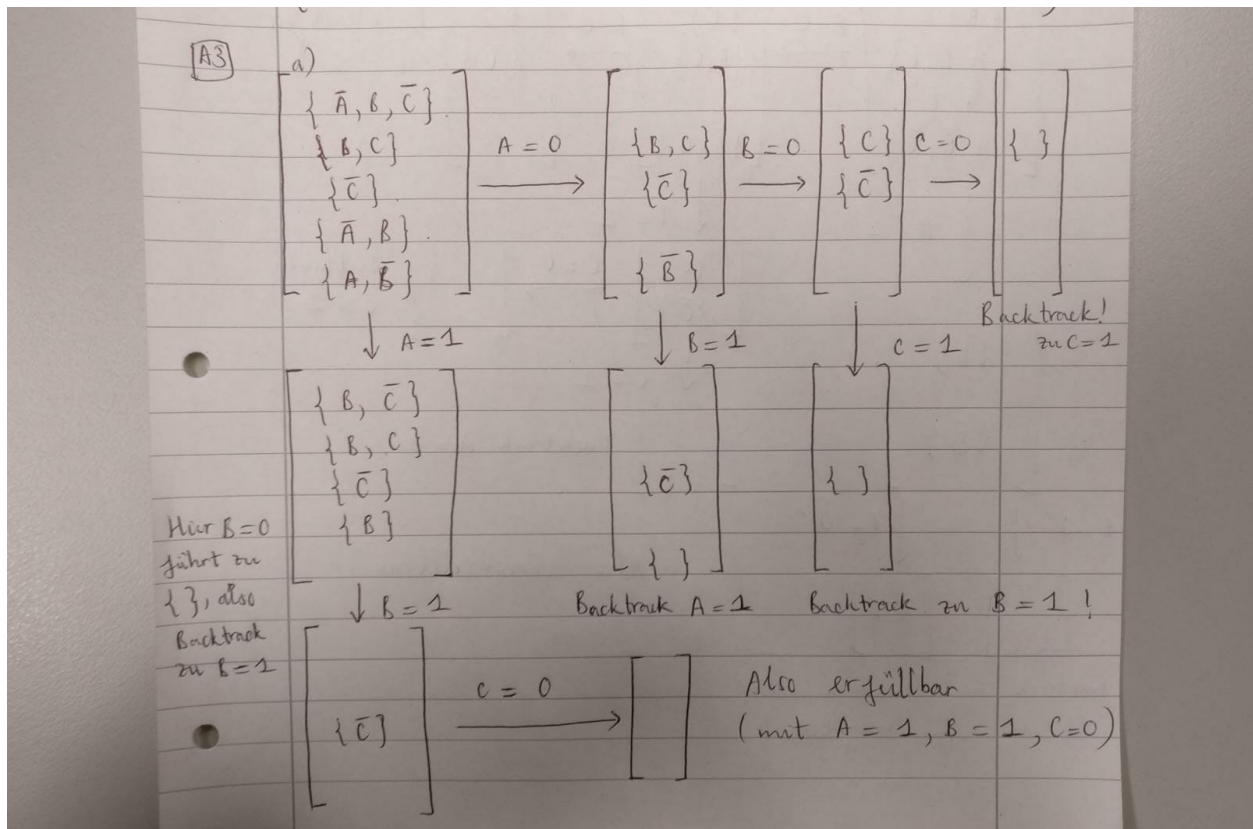 A3 a)
{ A̅, B, C̅ }
{ B, C } A = 0 { B, C } B = 0 { C } C = 0 { }
{ C̅ } { C̅ } { C̅ }
{ A̅, B }
{ A, B̅ } { B̅ }
Backtrack!
zu C = 1
A = 1 B = 1 C = 1
{ B, C̅ }
{ B, C }
{ C̅ } { C̅ } { }
{ B }
{ }
Hier B = 0
führt zu
{ }, also
Backtrack
zu B = 1
B = 1 Backtrack A = 1 Backtrack zu B = 1 !
C = 0 Also erfüllbar
{ C̅ } (mit A = 1, B = 1, C = 0)